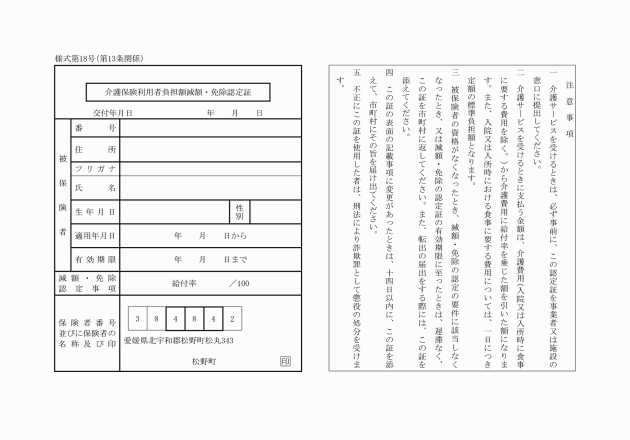 様式第18号(第13条関係)
介護保険利用者負担額減額・免除認定証
交付年月日　年　月　日
被保険者
番　号
住　所
フリガナ
氏　名
生年月日
性別
適用年月日　年　月　日から
有効期限　年　月　日まで
減額・免除
認定事項
給付率　／100
保険者番号
並びに保険者の
名称及び印
3 8 4 8 4 2
愛媛県北宇和郡松野町松丸343
松野町　印
注意事項
一　介護サービスを受けるときは、必ず事前に、この認定証を事業者又は施設の
窓口に提出してください。
二　介護サービスを受けるときに支払う金額は、介護費用(入院又は入所時に食事
に要する費用を除く。)から介護費用に給付率を乗じた額を引いた額になりま
す。また、入院又は入所時における食事に要する費用については、一日につき
定額の標準負担額となります。
三　被保険者の資格がなくなったとき、減額・免除の認定の要件に該当しなく
なったとき、又は減額・免除の認定証の有効期限に至ったときは、遅滞なく、
この証を市町村に返してください。また、転出の届出をする際には、この証を
添えてください。
四　この証の表面の記載事項に変更があったときは、十四日以内に、この証を添
えて、市町村にその旨を届け出てください。
五　不正にこの証を使用した者は、刑法により詐欺罪として懲役の処分を受けま
す。